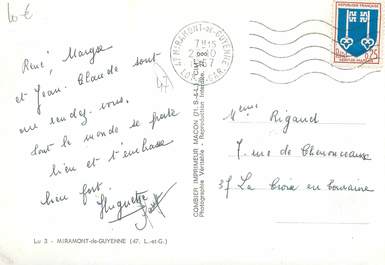 10€
René, Margot
et Jean-Claude sont
au rendez-vous.
Tout le monde se porte
bien et t'embrasse
bien fort
Huguette
47
47 MIRAMONT-DE-GUYENNE
LOT-ET-GAR.
REPUBLIQUE FRANÇAISE
0,25
COMBIER IMPRIMEUR MACON (71. S.-&-L.)
Photographie Véritable - Reproduction Interdite
Rigaud
7 rue de Chenonceaux
37 La Croix en Touraine
Lu 3 - MIRAMONT-de-GUYENNE (47. L.-et-G.)